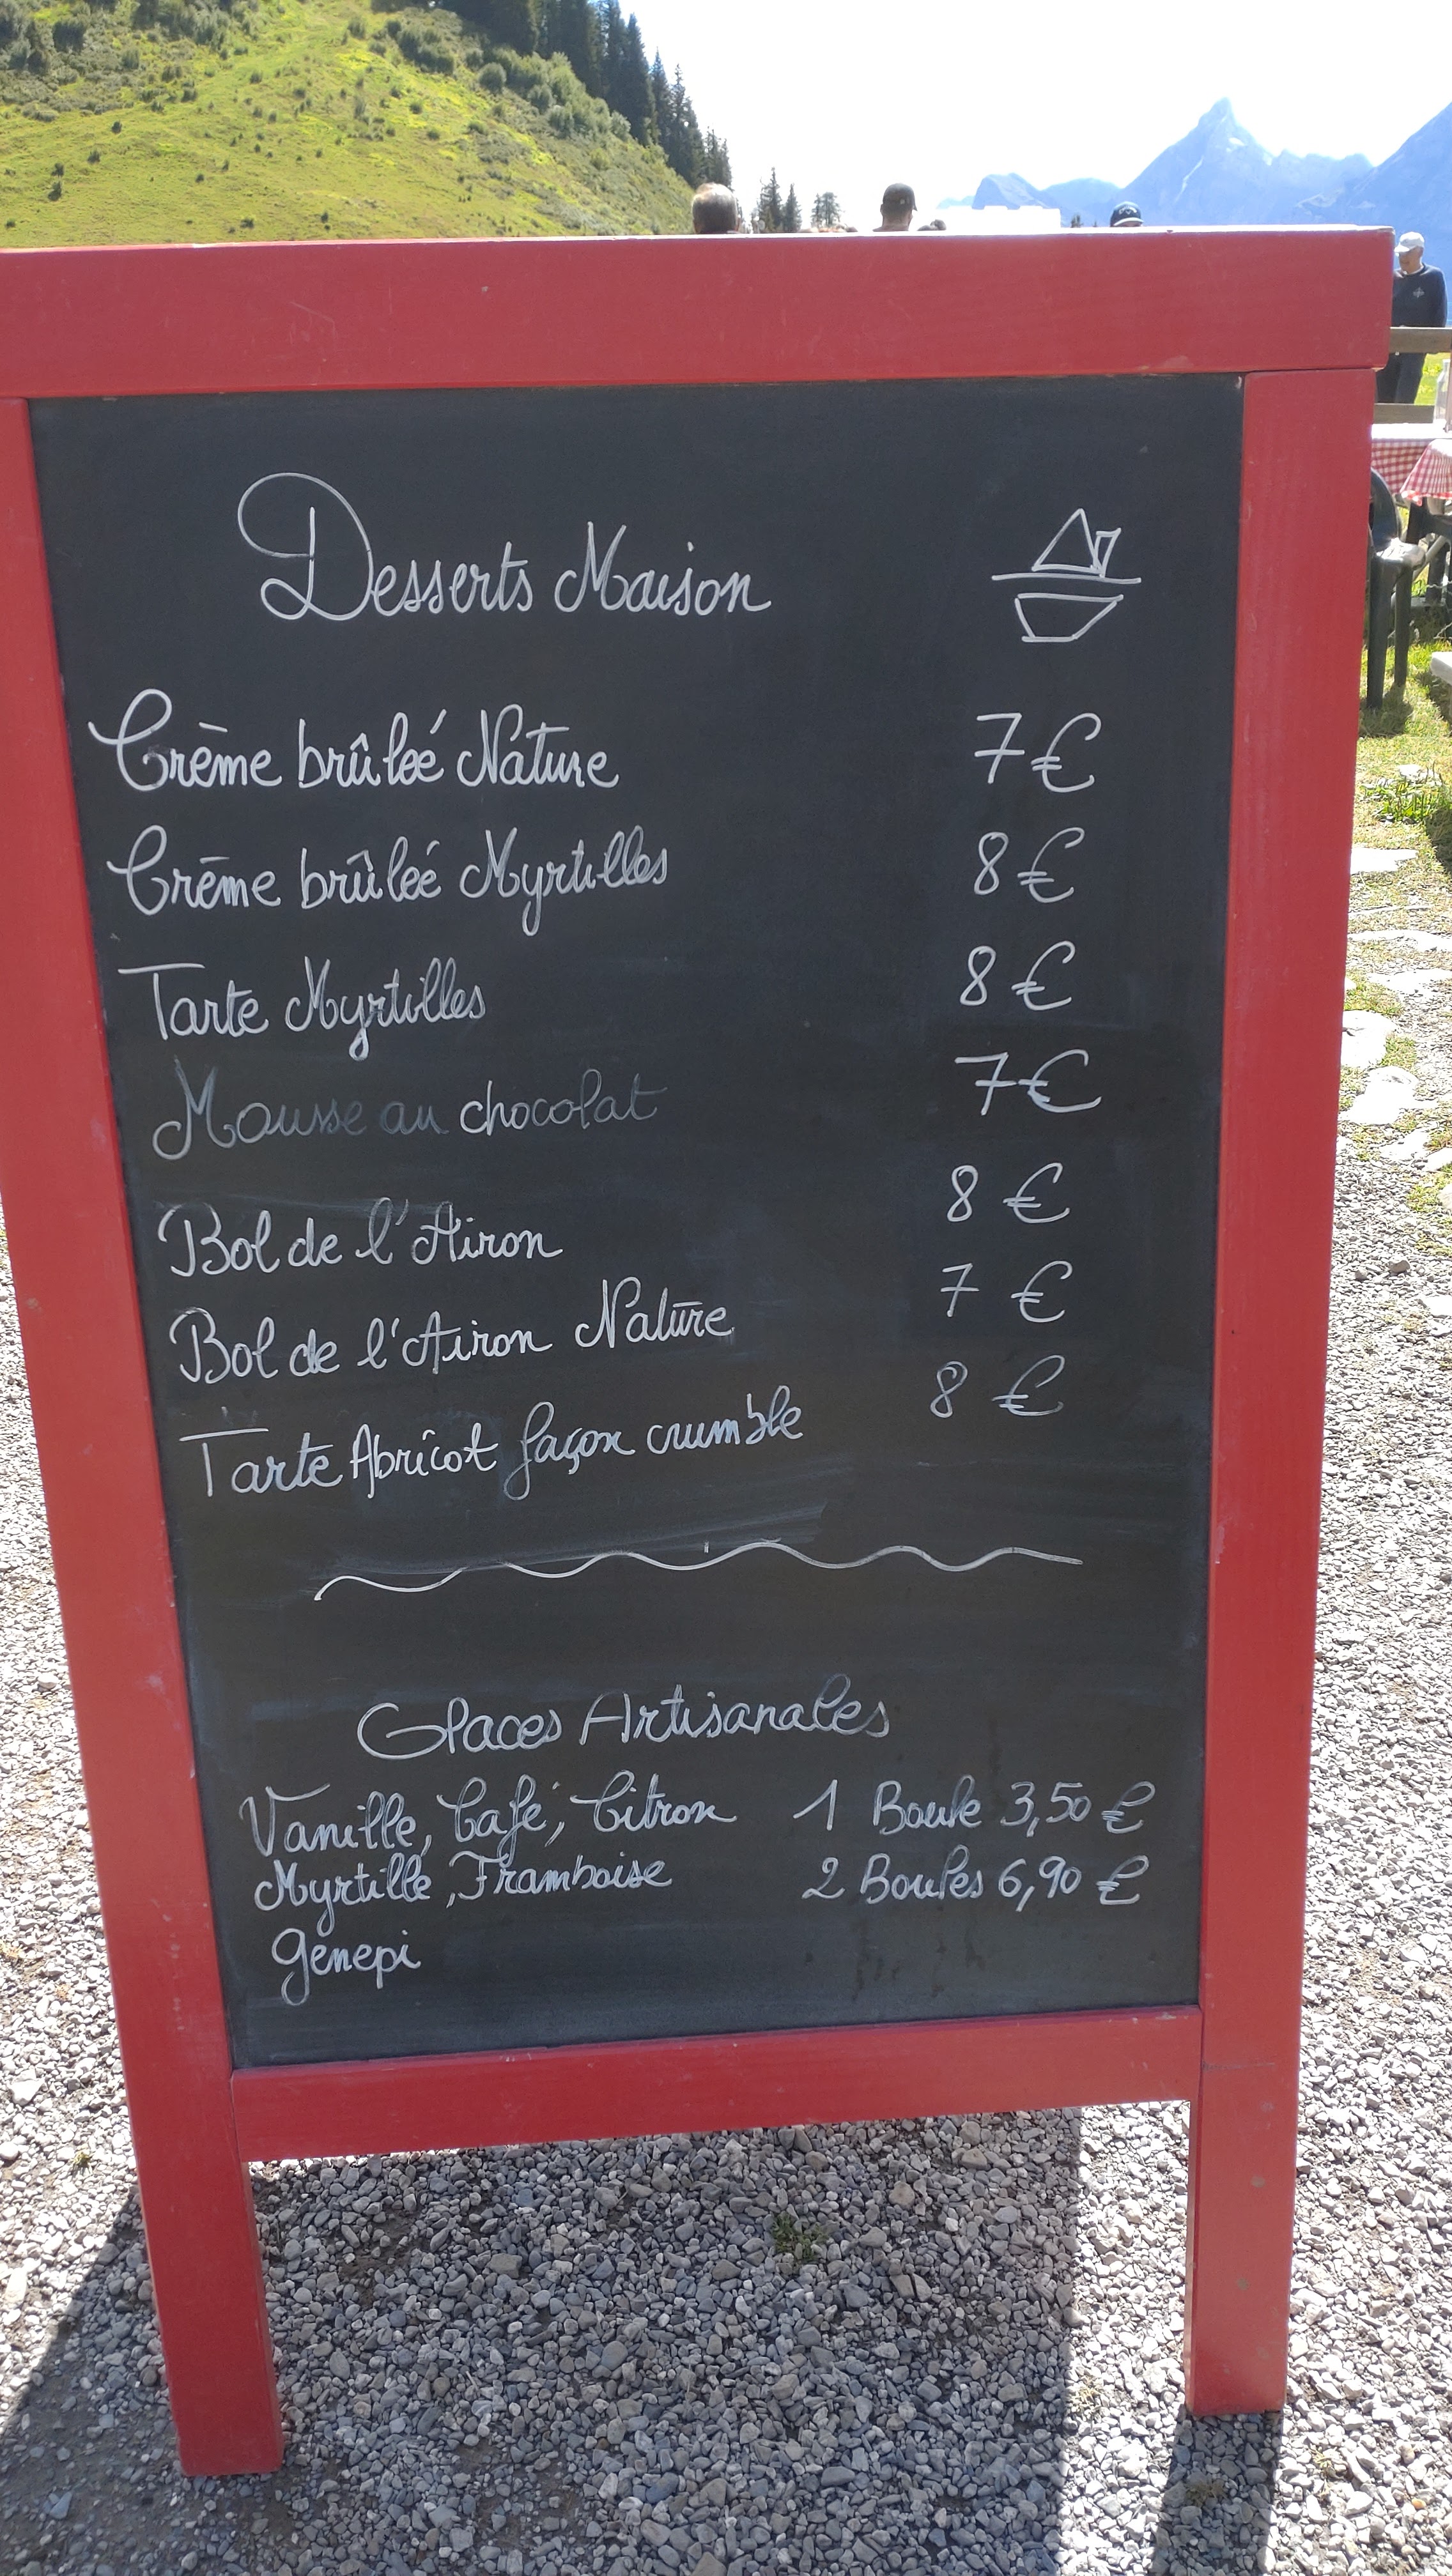 Desserts Maison
Crème brûleé Nature 7€
Crème brûleé Myrtilles 8€
Tarte Myrtilles 8€
Mousse au chocolat 7€
Bol de l'Airon 8 €
Bol de l'Airon Nature 7 €
Tarte Abricot façon crumble 8 €
Glaces Artisanales
Vanille, Café, Citron 1 Boule 3,50 €
Myrtille, Framboise 2 Boules 6,90 €
Genepi